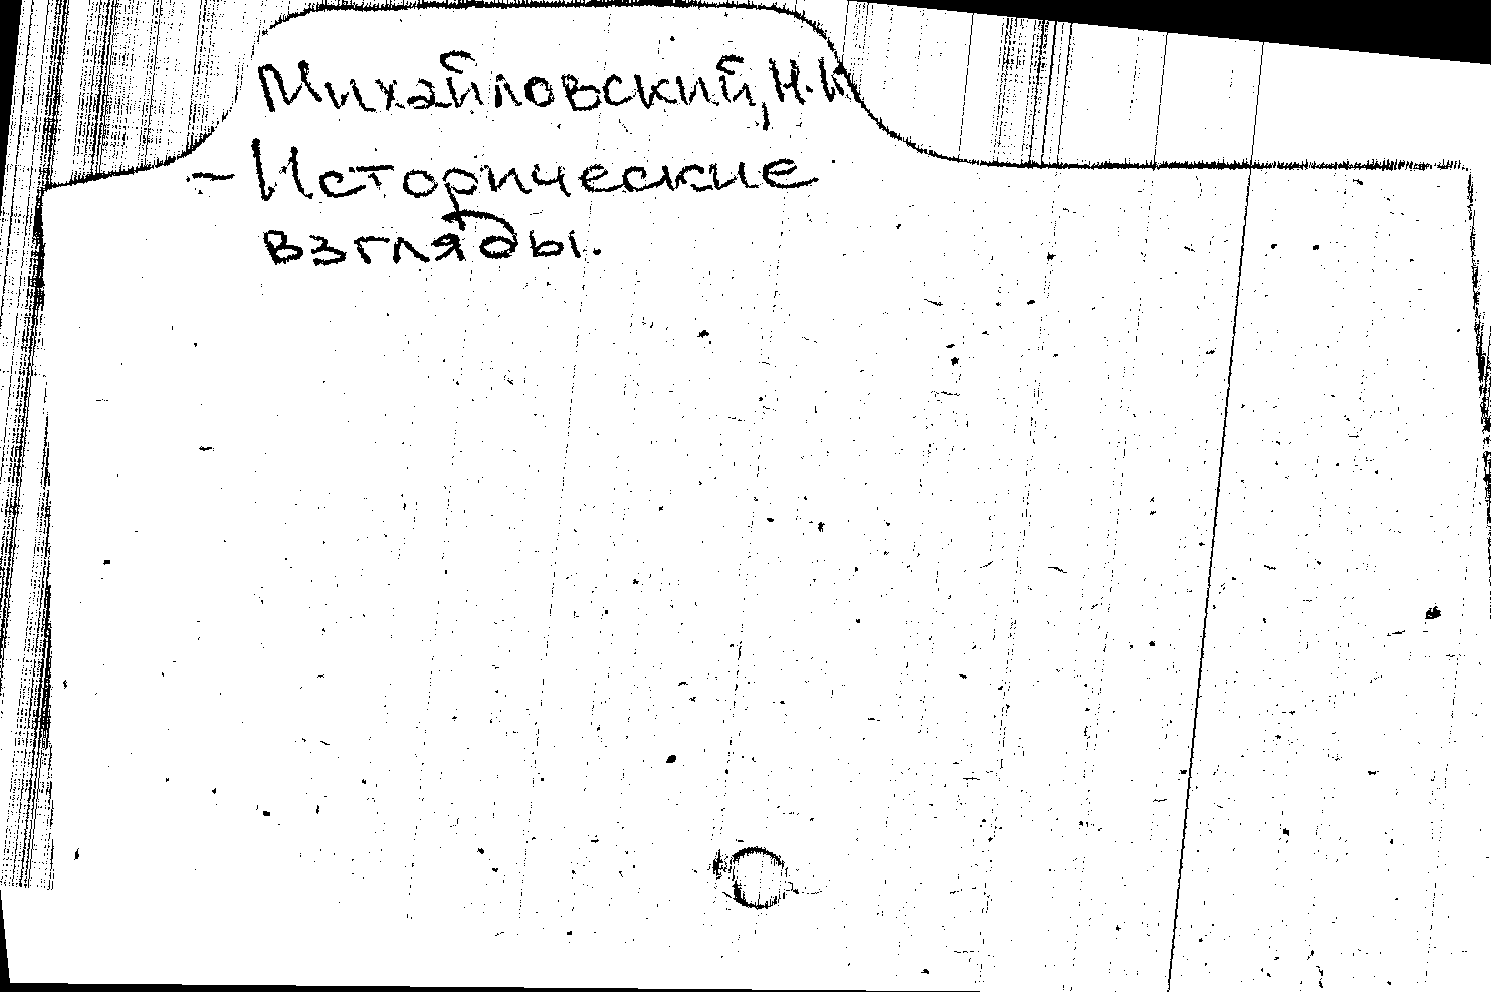 Михайловский, Н.К
- Исторические
взгляды.